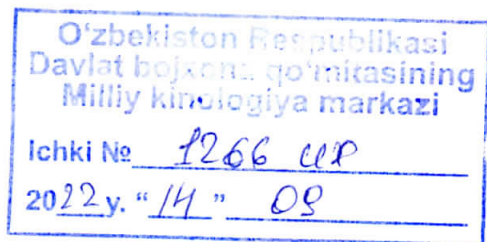 O'zbekiston Respublikasi
Davlat bojxona qo'mitasining
Milliy kinologiya markazi
Ichki № 1266 ИР
2022 y. "14" 09